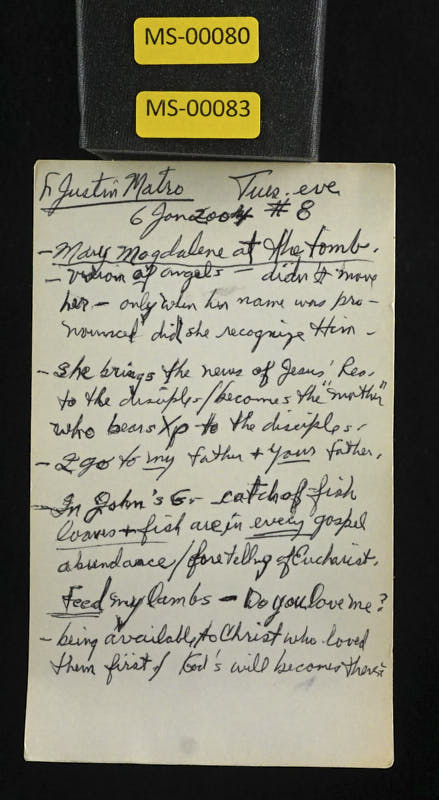 MS-00080
MS-00083
Fr Justin Matro Tues. eve
6 Jan 2004 # 8
- Mary Magdalene at the tomb.
- vision of angels - didn't move
her - only when her name was pro-
nounced did she recognize Him -
- She brings the news of Jesus' Res.
to the disciples/becomes the "mother"
who bears Xp to the disciples.
- I go to my Father + your Father.
- In John's Gr - catch of fish
loaves + fish are in every gospel
abundance/foretelling of Eucharist.
Feed my lambs - Do you love me?
- being available to Christ who loved
them first/ God's will becomes theirs